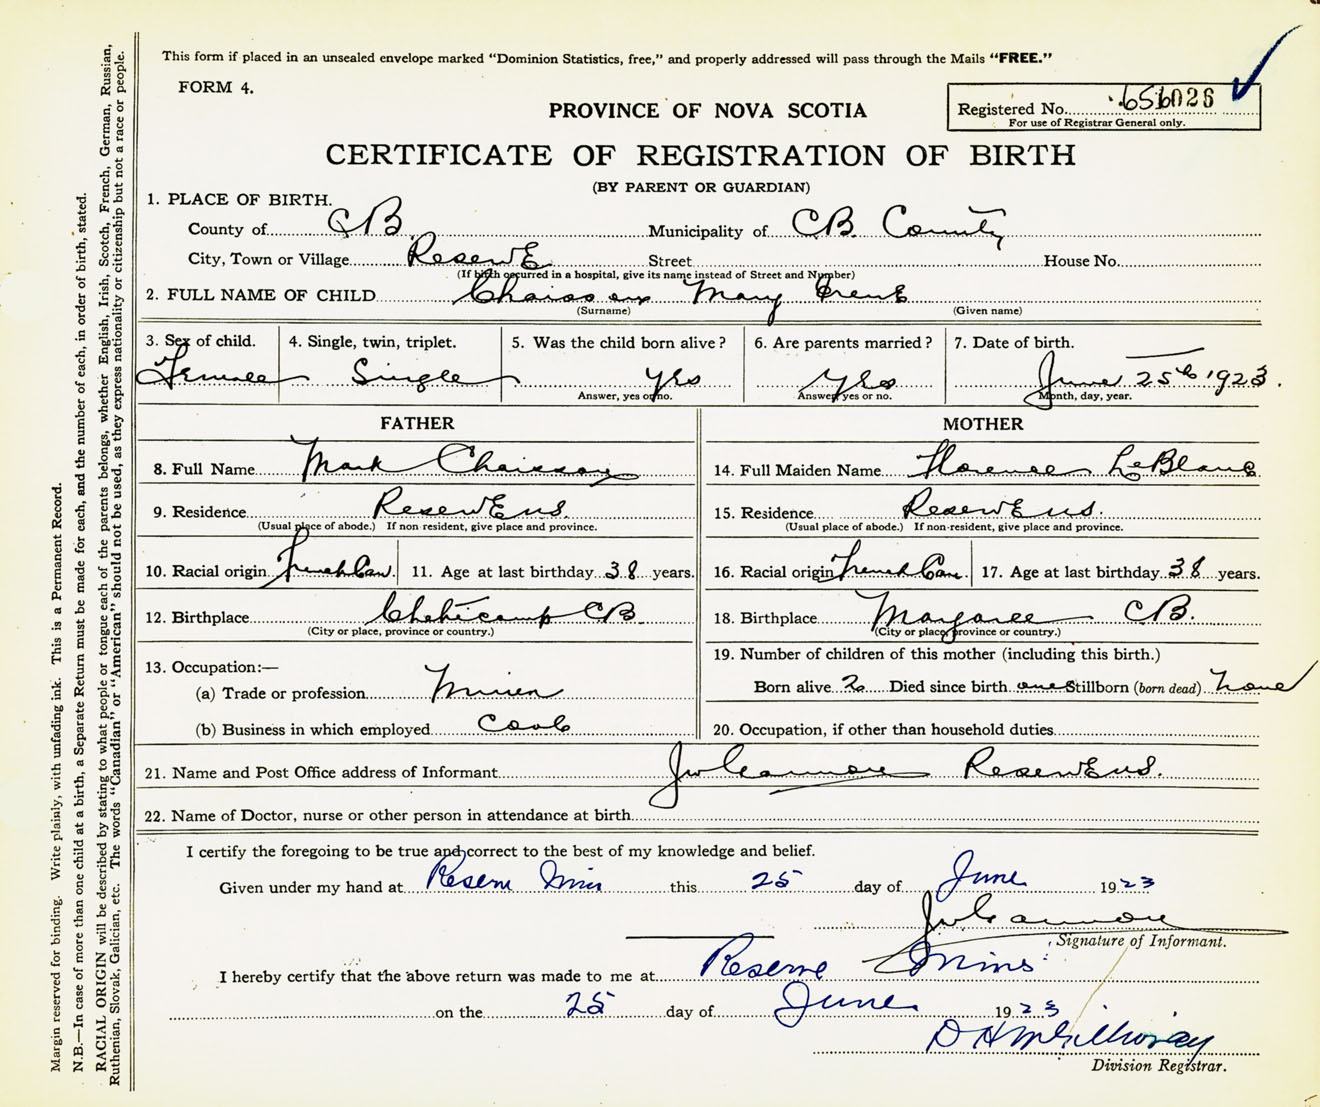 This form if placed in an unsealed envelope marked "Dominion Statistics, free," and properly addressed will pass through the Mails "FREE."
FORM 4.
Registered No. 656026
For use of Registrar General only.
PROVINCE OF NOVA SCOTIA
CERTIFICATE OF REGISTRATION OF BIRTH
(BY PARENT OR GUARDIAN)
1. PLACE OF BIRTH.
County of CB Municipality of CB. County
City, Town or Village Reserve Street House No.
(If birth occurred in a hospital, give its name instead of Street and Number)
2. FULL NAME OF CHILD Chaisson Mary Irene
(Surname) (Given name)
3. Sex of child. 4. Single, twin, triplet. 5. Was the child born alive? 6. Are parents married? 7. Date of birth.
Female Single yes yes June 25th 1923.
Answer, yes or no. Answer, yes or no. Month, day, year.
FATHER MOTHER
8. Full Name Mark Chaisson 14. Full Maiden Name Florence LeBlanc
9. Residence 15. Residence
(Usual place of abode.) If non-resident, give place and province. (Usual place of abode.) If non-resident, give place and province.
10. Racial origin French Can. 11. Age at last birthday 38 years. 16. Racial origin French Can. 17. Age at last birthday 38 years.
12. Birthplace Cheticamp CB 18. Birthplace Margaree CB.
(City or place, province or country.) (City or place, province or country.)
13. Occupation:— 19. Number of children of this mother (including this birth.)
(a) Trade or profession Miner Born alive 2 Died since birth one Stillborn (born dead) none
(b) Business in which employed Coal 20. Occupation, if other than household duties
21. Name and Post Office address of Informant
22. Name of Doctor, nurse or other person in attendance at birth
I certify the foregoing to be true and correct to the best of my knowledge and belief.
Given under my hand at Reserve Mines this 25 day of June 1923
Signature of Informant.
I hereby certify that the above return was made to me at Reserve Mines
on the 25 day of June 1923
D H McGillivray
Division Registrar.
Margin reserved for binding. Write plainly, with unfading ink. This is a Permanent Record.
N.B.—In case of more than one child at a birth, a Separate Return must be made for each, and the number of each, in order of birth, stated.
RACIAL ORIGIN will be described by stating to what people or tongue each of the parents belongs, whether English, Irish, Scotch, French, German, Russian,
Ruthenian, Slovak, Galician, etc. The words "Canadian" or "American" should not be used, as they express nationality or citizenship but not a race or people.